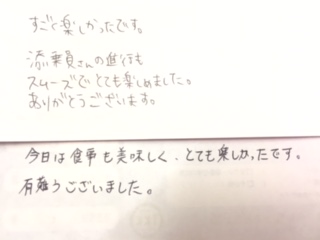 すごく楽しかったです。
添乗員さんの進行も
スムーズでとても楽しめました。
ありがとうございます。
今日は食事も美味しく、とても楽しかったです。
有難うございました。